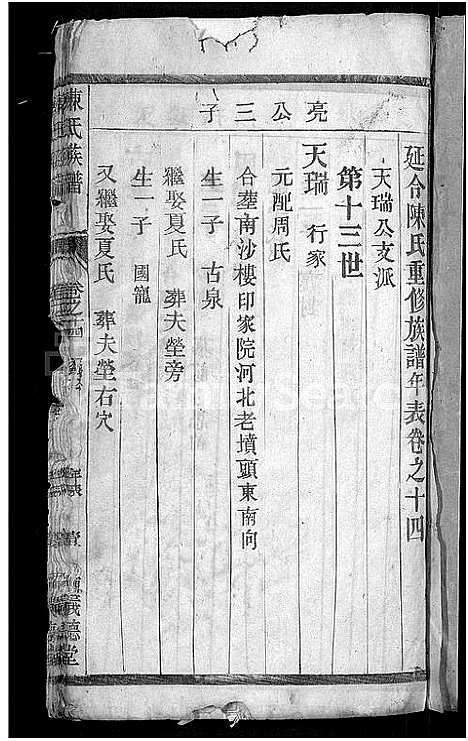 延令陳氏重修族譜年表卷之十四
天瑞公支派
亮公三子
第十三世
天瑞 行家
元配周氏
合塟南沙樓印家院河北老墳頭東南向
生一子 古泉
繼娶夏氏 葬夫塋旁
生一子 國寵
又繼娶夏氏 葬夫塋右穴
陳氏族譜 卷之十四 義德堂